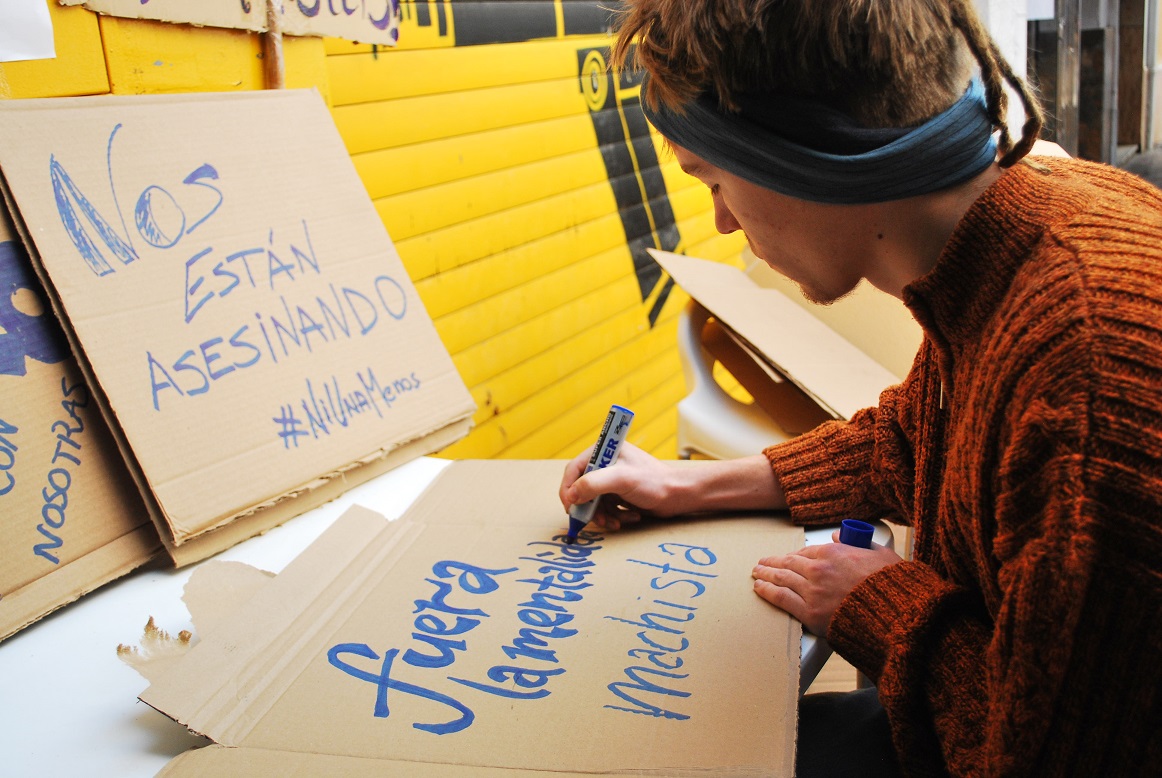 Nos
ESTÁN
ASESINANDO
#NiUnaMenos
CON
NOSOTRAS
fuera
la mentalidad
Machista